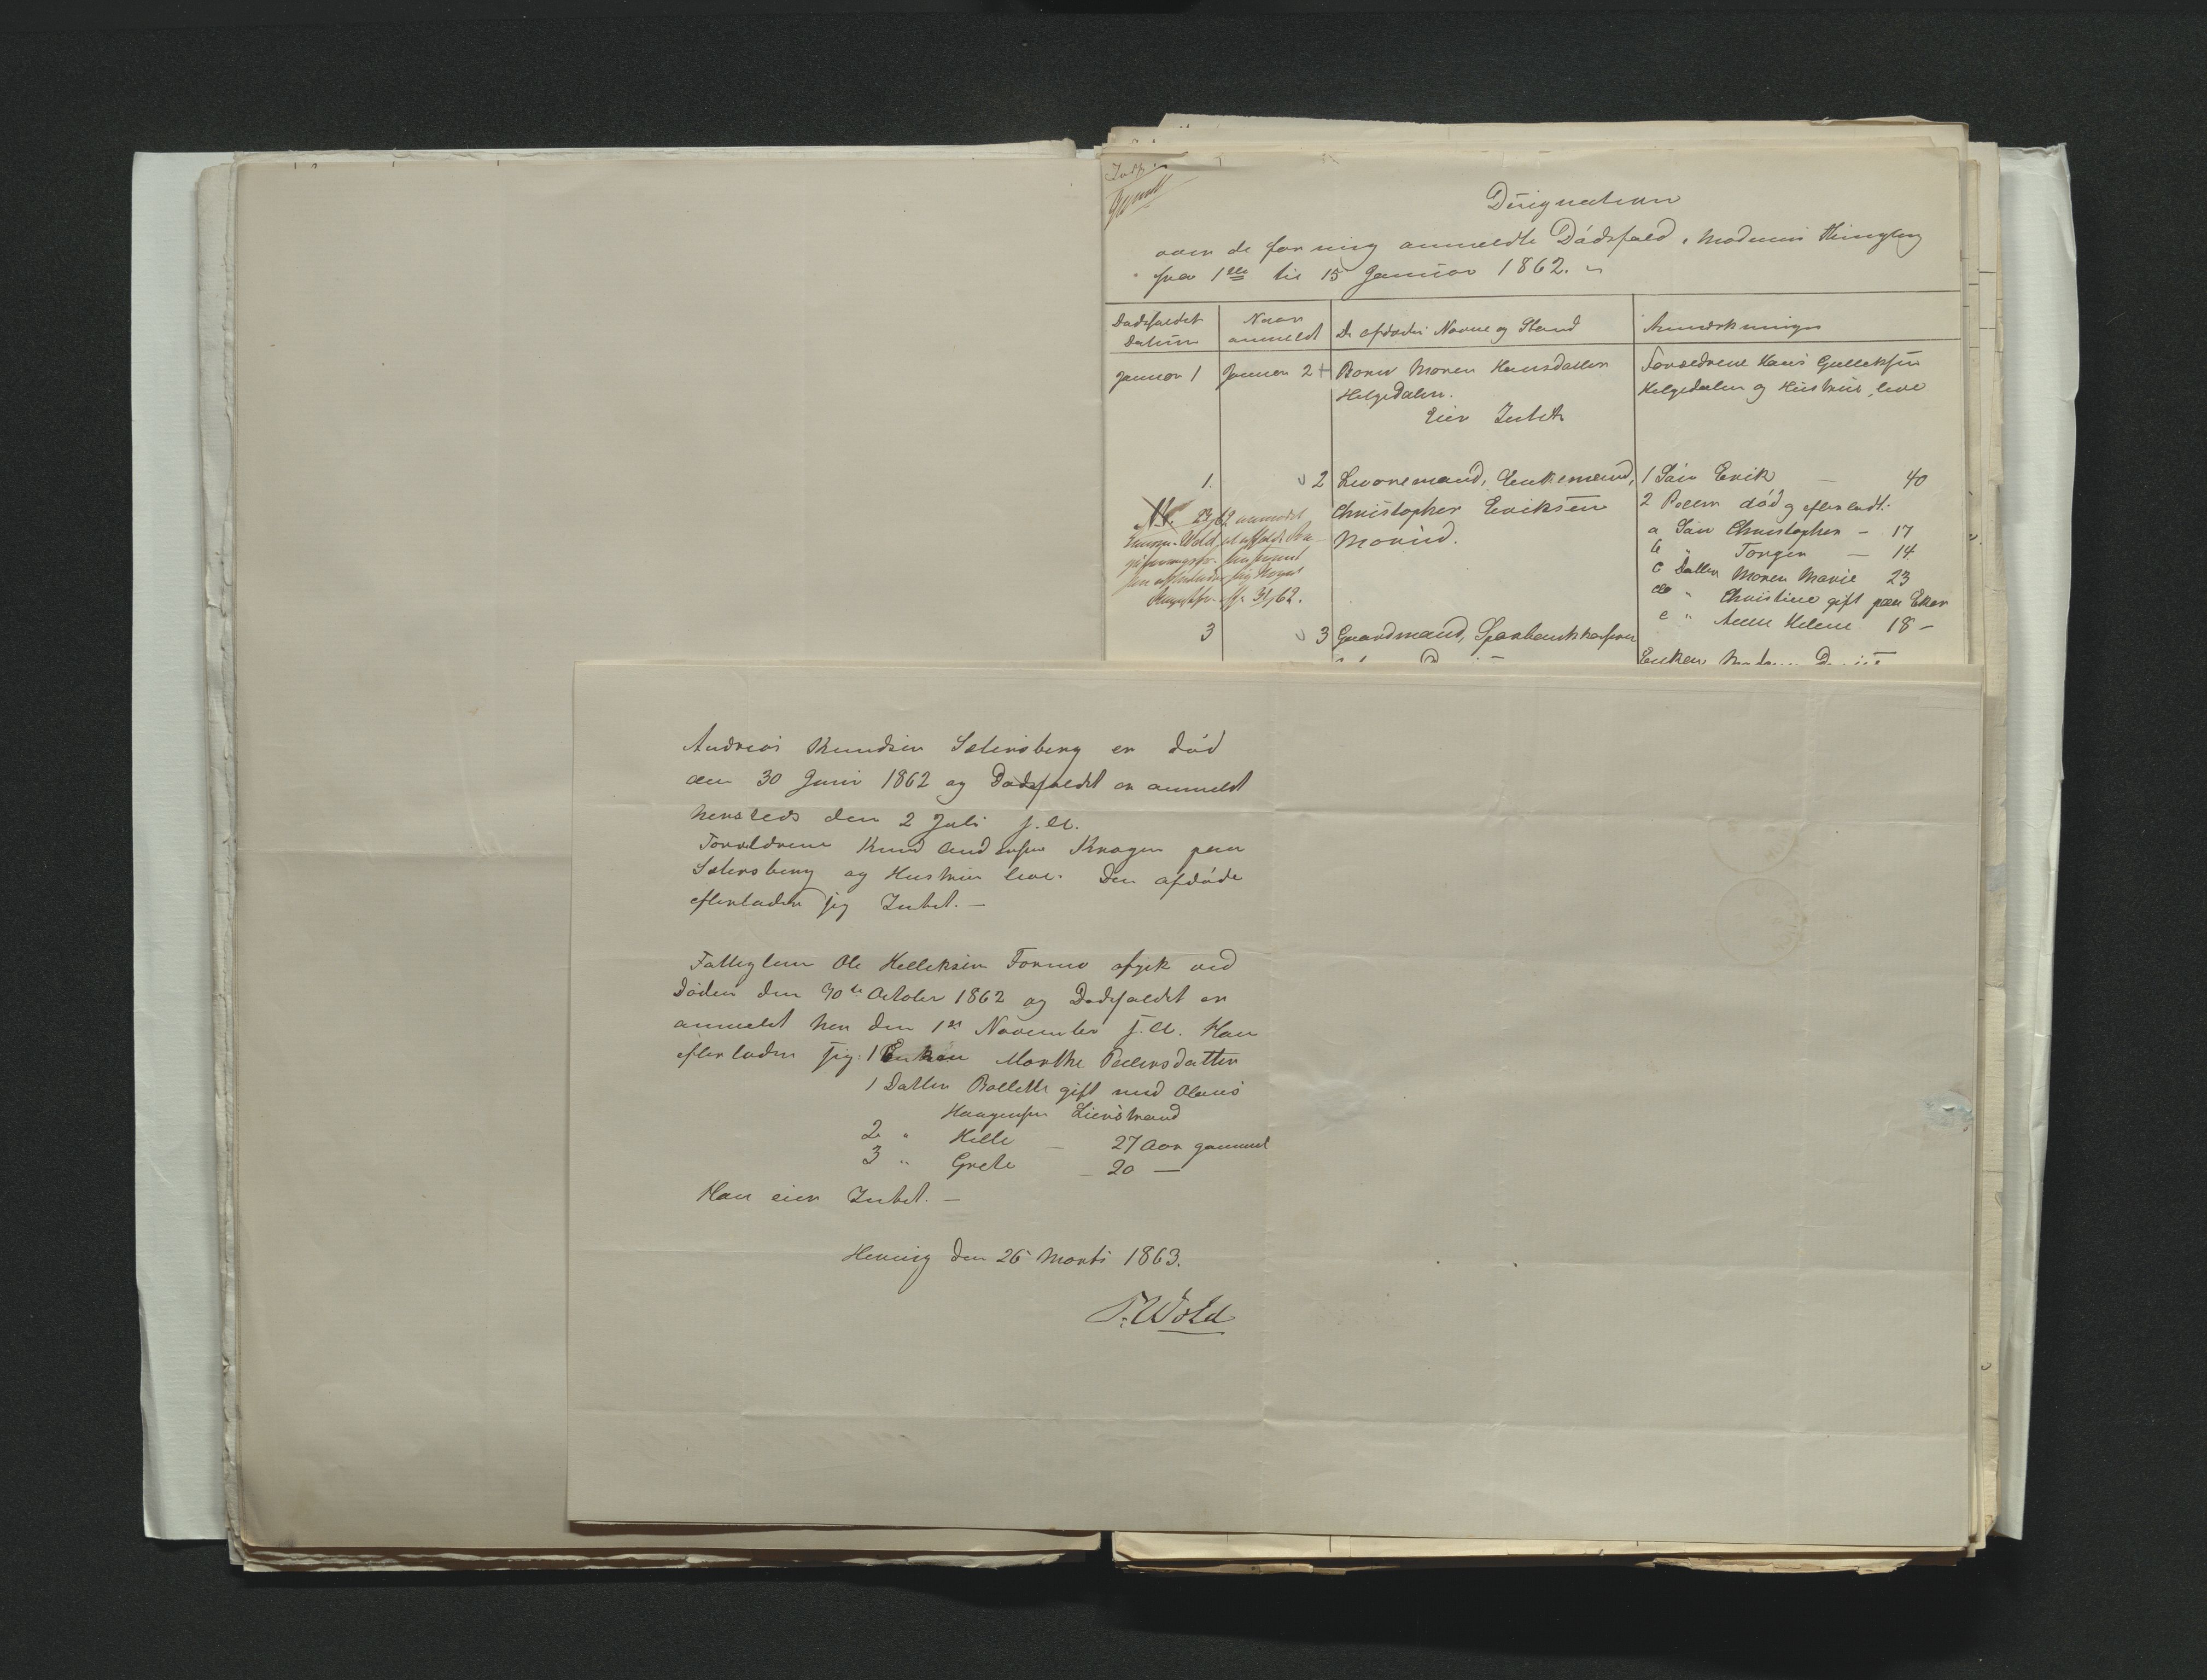 Designation
over de for mig anmeldte Dødsfald i Modums Thinglag
fra 1ste til 15 Januar 1862.
Dødsfaldets Datum
Naar anmeldt
De afdødes Navne og Stand
Anmærkninger
Januar 1
Januar 2
Barn Maren Hansdatter
Helgedalen.
Eier Intet
Forældrene Hans Gulleksen
Helgedalen og Hustrue, leve
1.
2
Livøremand, Enkemand,
Christopher Eriksen
Morud.
1 Søn Erik — 40
2 Peder død og efterladt:
a Søn Christopher — 17
b " Torger — 14
c Datter Maren Marie 23
d " Christine gift paa Eker
e " Anne Helene 18 —
3
3
Gaardmand, Sparebankkasserer
Enken
Andreas Knudsen Sætersberg er død
den 30 Juni 1862 og Dødsfaldet er anmeldt
hersteds den 2 Juli s. A.
Forældrene Knud Andersen Kragen paa
Sætersberg og Hustrue leve. Den afdøde
efterlader sig Intet. —
Fattiglem Ole Helleksen Formo afgik ved
Døden den 30te October 1862 og Dødsfaldet er
anmeldt her den 1ste November s. A. Han
efterlader sig: 1 Enken Marthe Pedersdatter
1 Datter Bollette gift med Olaus
Haagensen Lierstrand
2 " Helle — 27 Aar gammel
3 " Grete — 20 —
Han eier Intet. —
Hening den 26 Marts 1863.
T. Wold